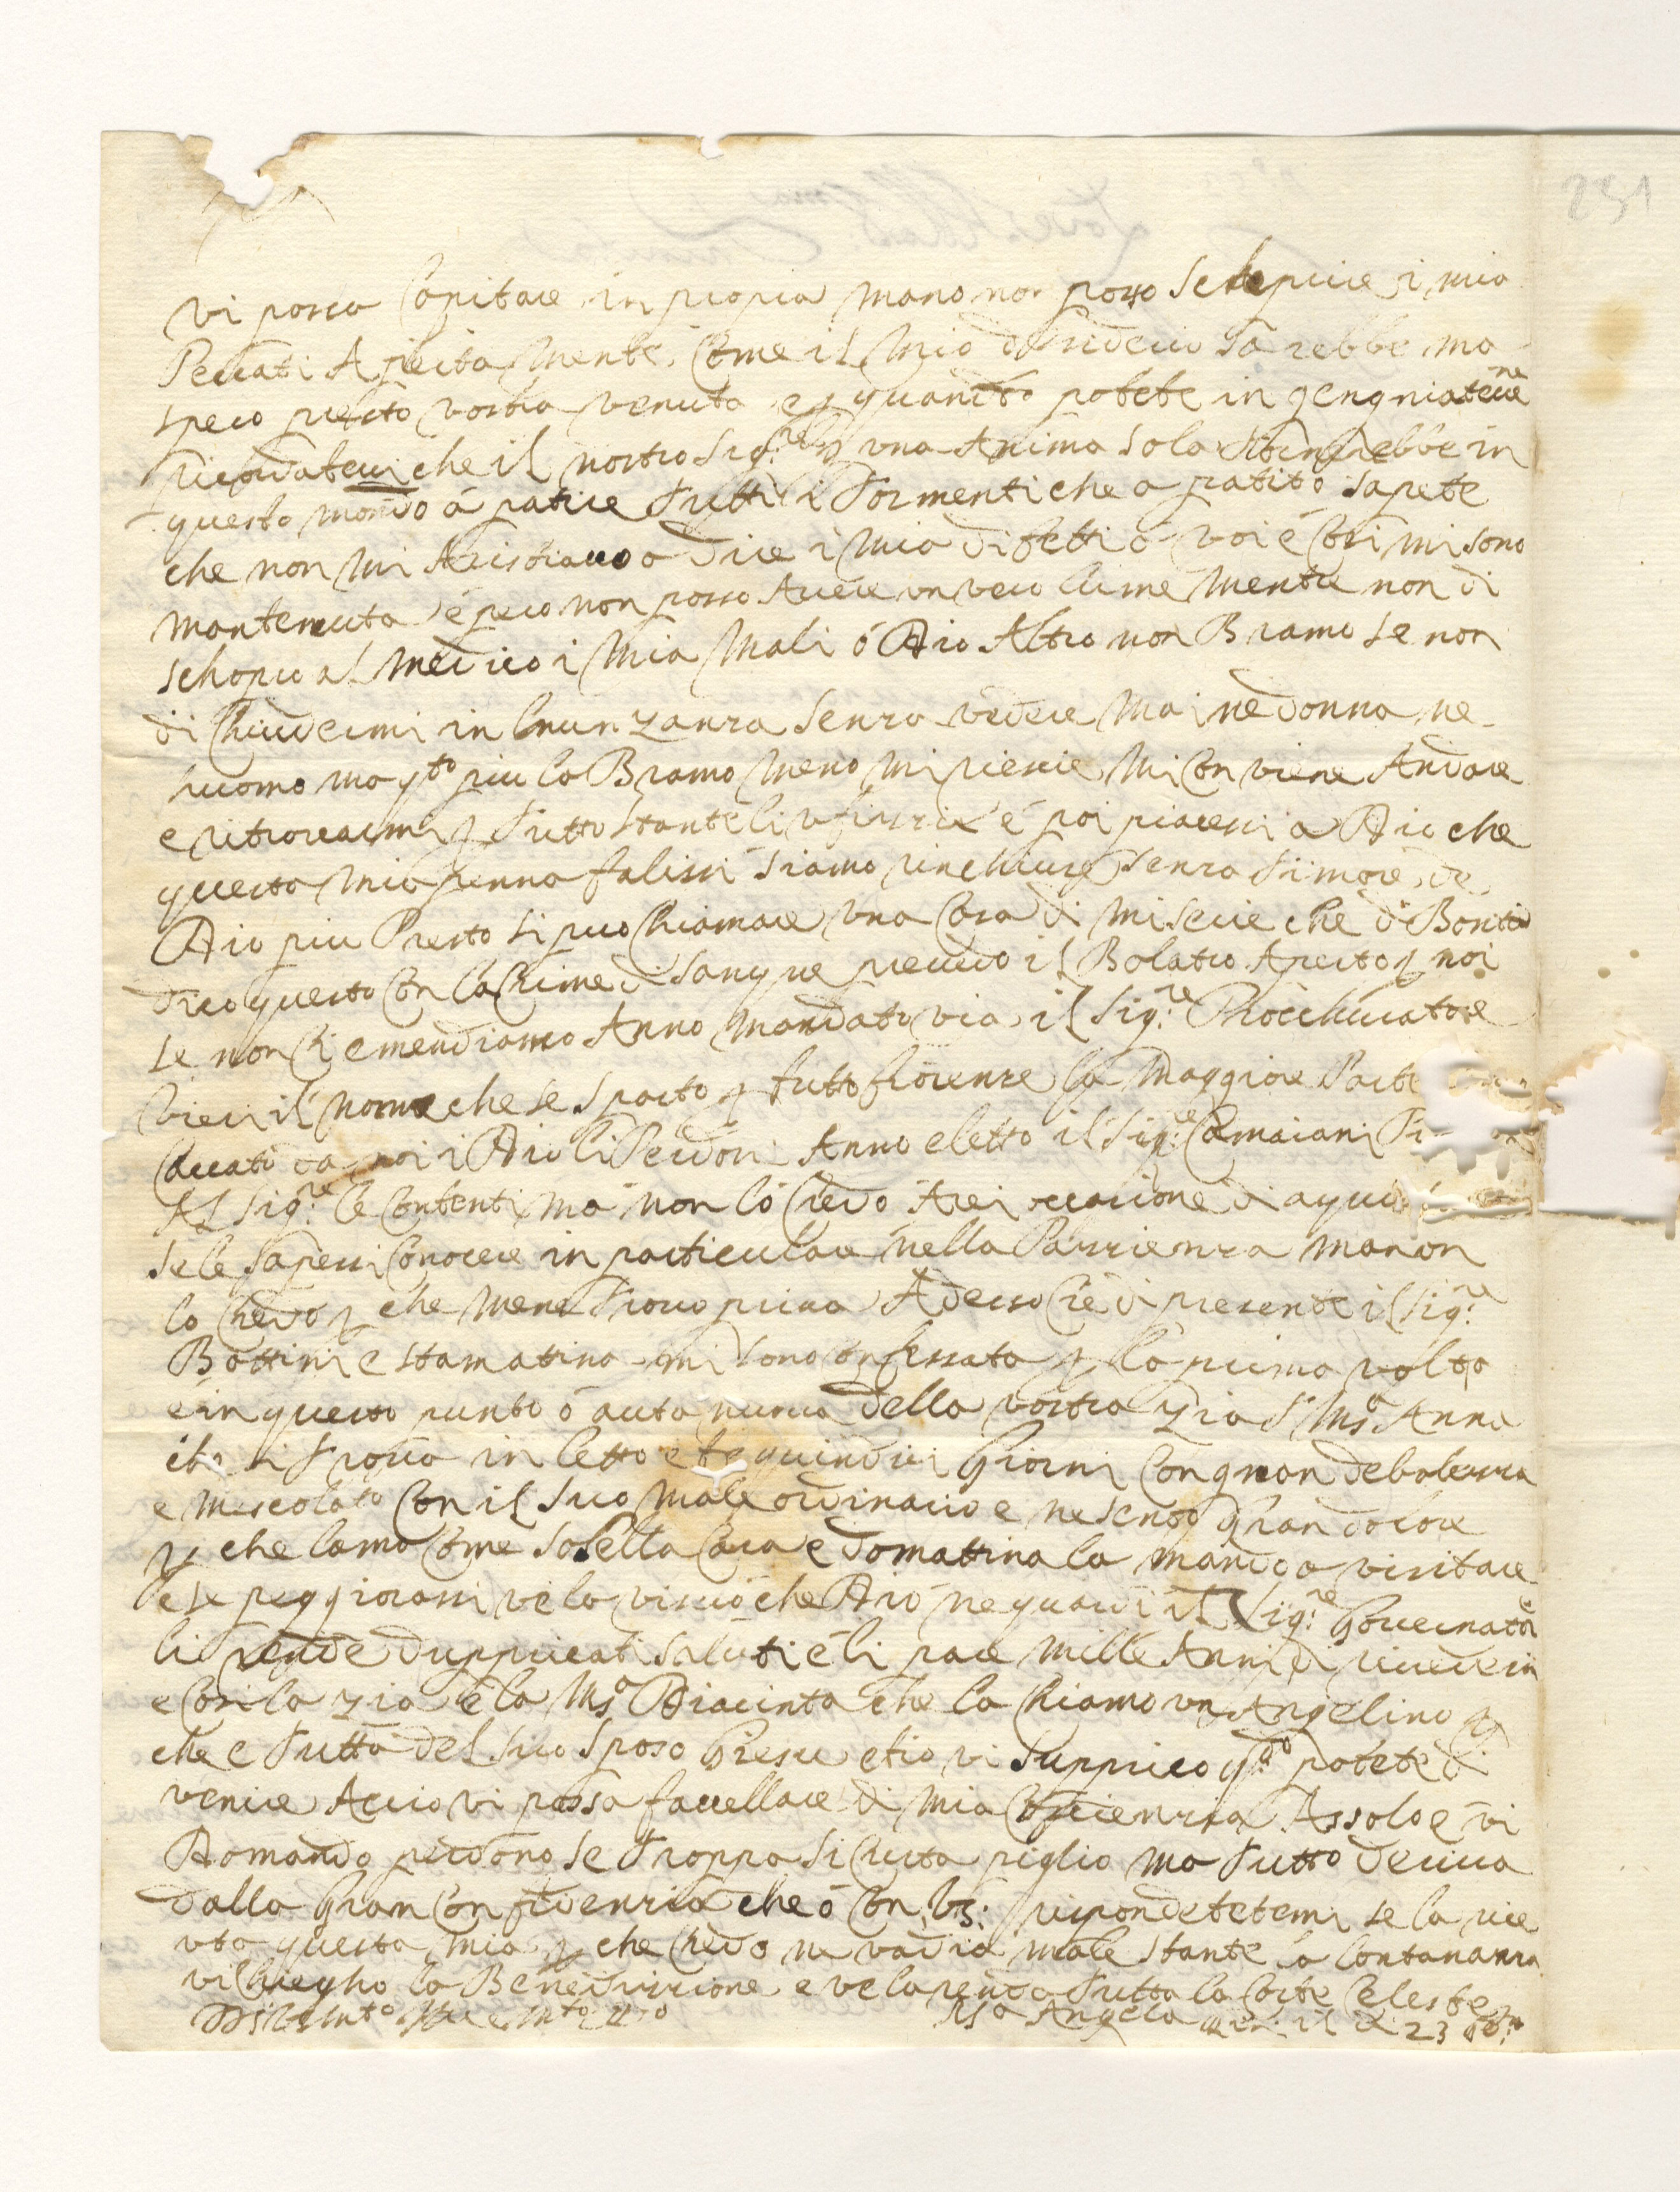 231
vi possa Capitare in propria mano non posso schoprire i mia
Peccati Aperta mente Come il mio disiderio sarebbe ma
spero presto vostra venuta e quando potete in gengniatevene
ricordatevi che il nostro Sig:re p una Anima sola in
questo mondo á patire tutti i Tormenti che a patito sapete
che non mi a dire i mia difetti a voi é Cosi mi sono
mantenuta é pero non posso Avere un vero lume mentre non di
schopro al medico i mia mali ó Dio Altro non Bramo se non
di Chiudermi in Cnun zanza senza vedere mai ne donna ne
huomo ma qto piu lo Bramo meno mi riescie mi Con viene Andare
e ritrovarmi p tutto stante li é poi piacessi a Dio che
questa mia penna falissi siamo rinchiuse senza Timore de
Dio piu Presto si puo Chiamare una Cosa di miserie che di Bonta
dico questo Con la Crime di sangue il Aperto p noi
se non Ci emendiamo Anno mandato via il Sig:re Procchuratore
il nome che se sparto p tutto fiorenze la maggior Parte
Caccati da noi i Dio li Perdoni Anno eletto il Sig:re Camaiani
Al Sig:re le Contenti ma non lo Credo Arei occasione di
se le sapessi Conoscere in particulare nella Pazzienza ma non
lo Chredo p che mene trovo priva Adesso Cie di presente il Sig:re
Bottini e stamatina mi sono Confessata p la prima volta
é in questo punto ó auta nuova della vostra Zia S Ma Anna
che si trova in letto e fa quindici Giorni Con gran debolezza
e mescolato Con il suo male ordinario e ne sento Gran dolore
p che lamo Come Sorella Cara e domattina la mando a visitare
e se peggiorassi ve lo che Dio ne guardi il Sig:re Governatore
li rende dupplicati saluti é li pare mille Anni di
e Cosi la zia é la Ma Diacinta che la Chiamo un Angelino p
che e tutta del suo sposo Giesu etio vi supprico qdo potete di
venire Accio vi possa favellare di mia Coscienzia Assolo e vi
Domando perdono se troppa si Curta piglio ma tutto deriva
dalla Gran Confidenzia che ó Con VS: rispondetetemi se la rice
vta questa mia p che Chredo ne vadia male stante la lontananza
vi Chiegho la Benedizzione e ve la renda tutta la Corte Celeste
Ma Angela 23